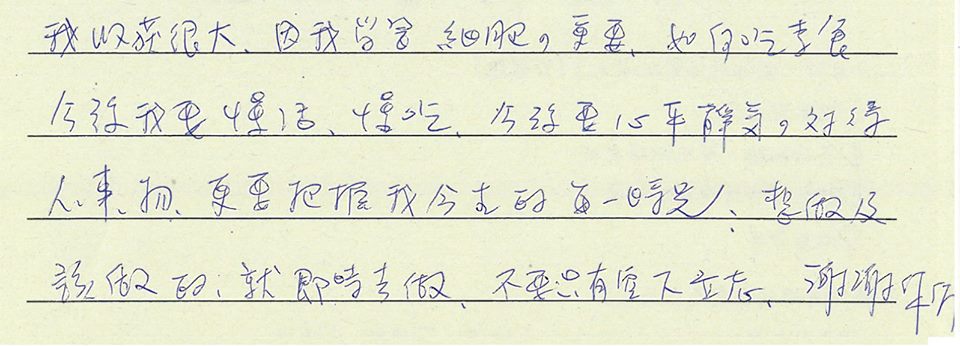 我收获很大、因我學習細胞。更要、如何吃素食
今後我要懂活、懂吃、今後要心平靜氣。对待
人、事、物、更要把握我今生的每一時況、想做及
該做的、就即時去做、不要只有空下立志、謝謝